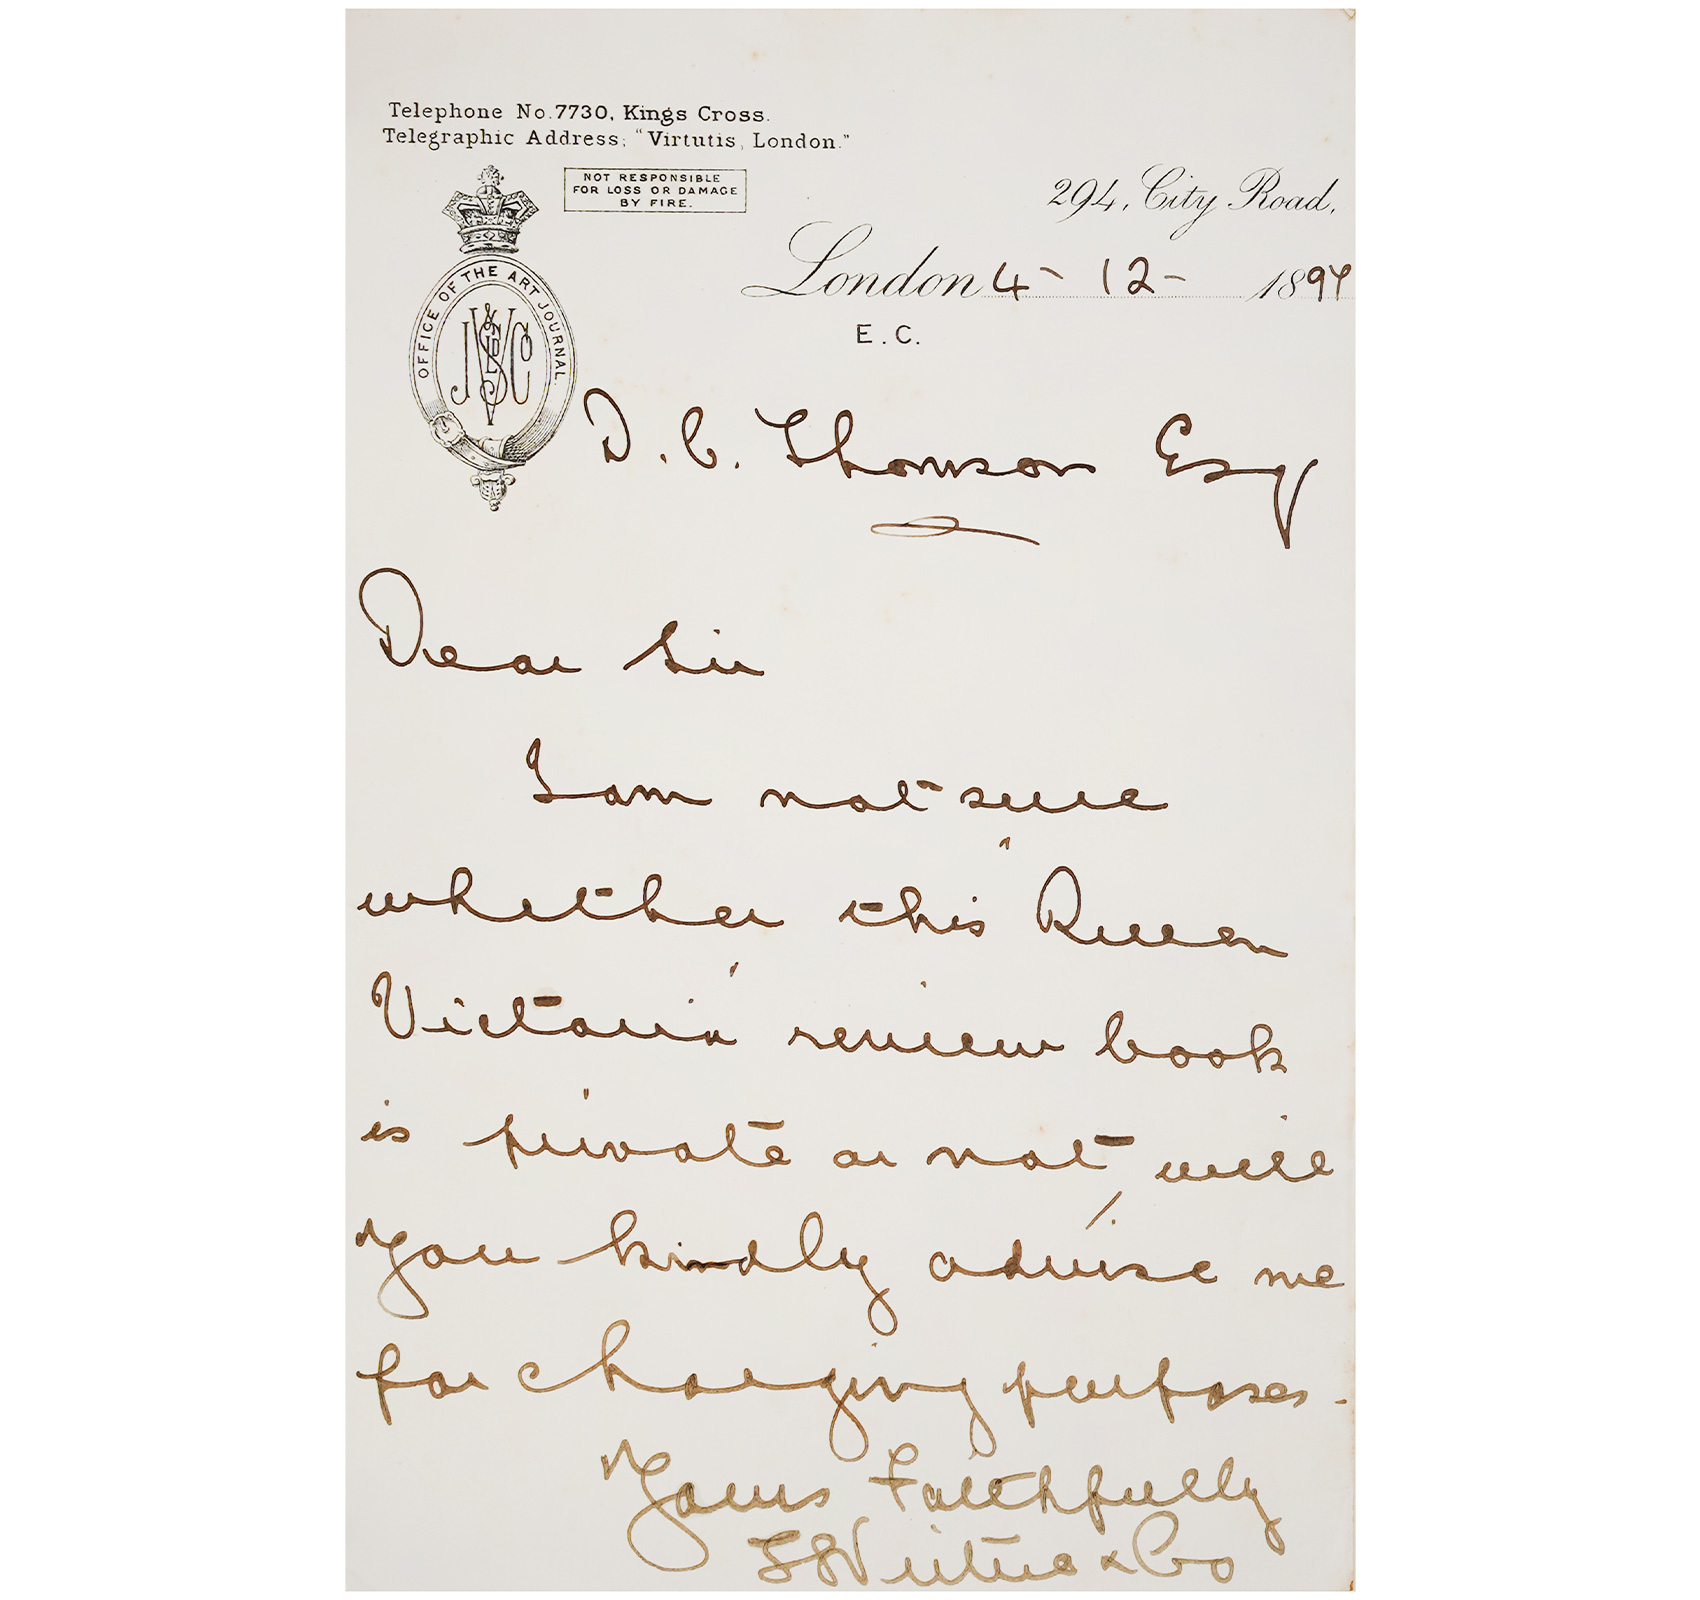 Telephone No. 7730, Kings Cross.
Telegraphic Address; "Virtutis, London."
NOT RESPONSIBLE
FOR LOSS OR DAMAGE
BY FIRE.
294, City Road,
London 4 - 12 - 1894
E.C.
OFFICE OF THE ART JOURNAL.
D. C. Thomson Esq
Dear Sir
I am not sure
whether this Queen
Victoria review book
is private or not, will
you kindly advise me
for charging purposes.
Yours Faithfully
Virtue & Co